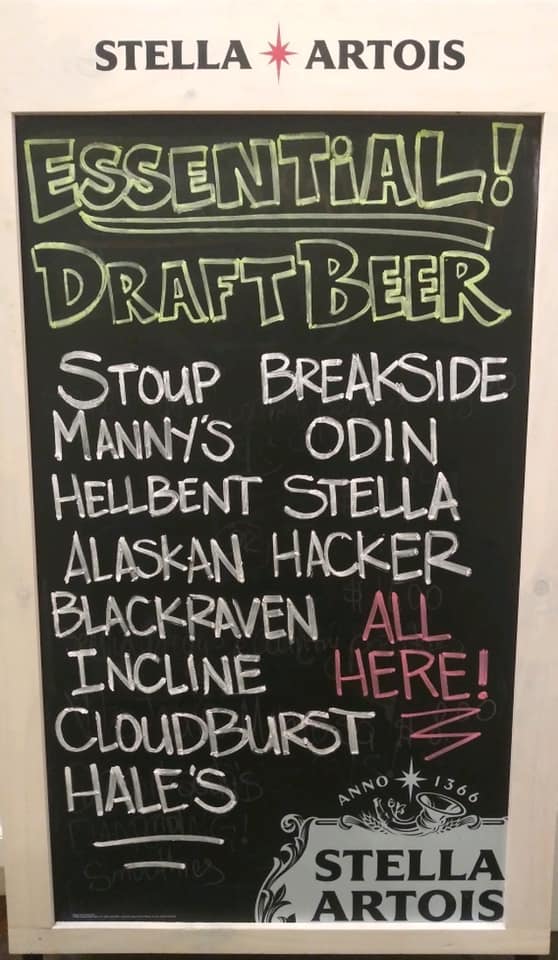 STELLA ARTOIS
ESSENTiAL!
DRAFT BEER
STOUP BREAKSIDE
MANNY'S ODIN
HELLBENT STELLA
ALASKAN HACKER
BLACKRAVEN ALL
INCLINE HERE!
CLOUDBURST
HALE'S
ANNO 1366
STELLA
ARTOIS